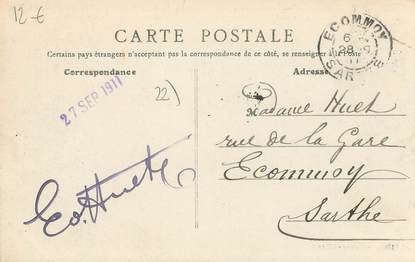 12-€
CARTE POSTALE
Certains pays étrangers n'acceptant pas la correspondance de ce côté, se renseigner à la Poste
Correspondance
Adresse
27 SEP 1911
22)
ECOMMOY
6
28 - 9
11
SARTHE
Madame Huet
rue de la Gare
Ecommoy
Sarthe
Ed. Huet